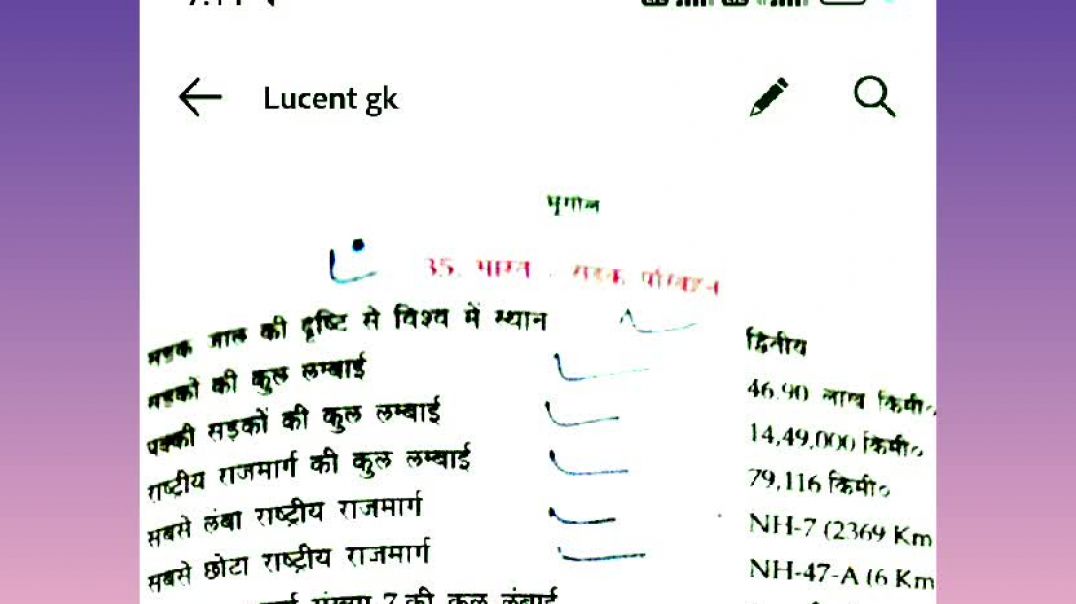 Lucent gk
भूगोल
35. भारत - सड़क परिवहन
सड़क जाल की दृष्टि से विश्व में स्थान द्वितीय
सड़कों की कुल लम्बाई 46.90 लाख किमी०
पक्की सड़कों की कुल लम्बाई 14,49,000 किमी०
राष्ट्रीय राजमार्ग की कुल लम्बाई 79,116 किमी०
सबसे लंबा राष्ट्रीय राजमार्ग NH-7 (2369 Km
सबसे छोटा राष्ट्रीय राजमार्ग NH-47-A (6 Km
7 की कुल लंबाई